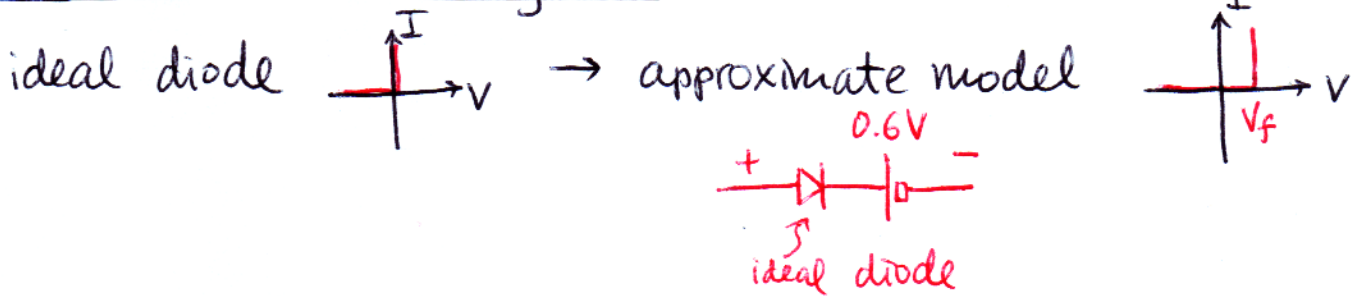 I I
ideal diode V → approximate model V
0.6V Vf
+ −
ideal diode